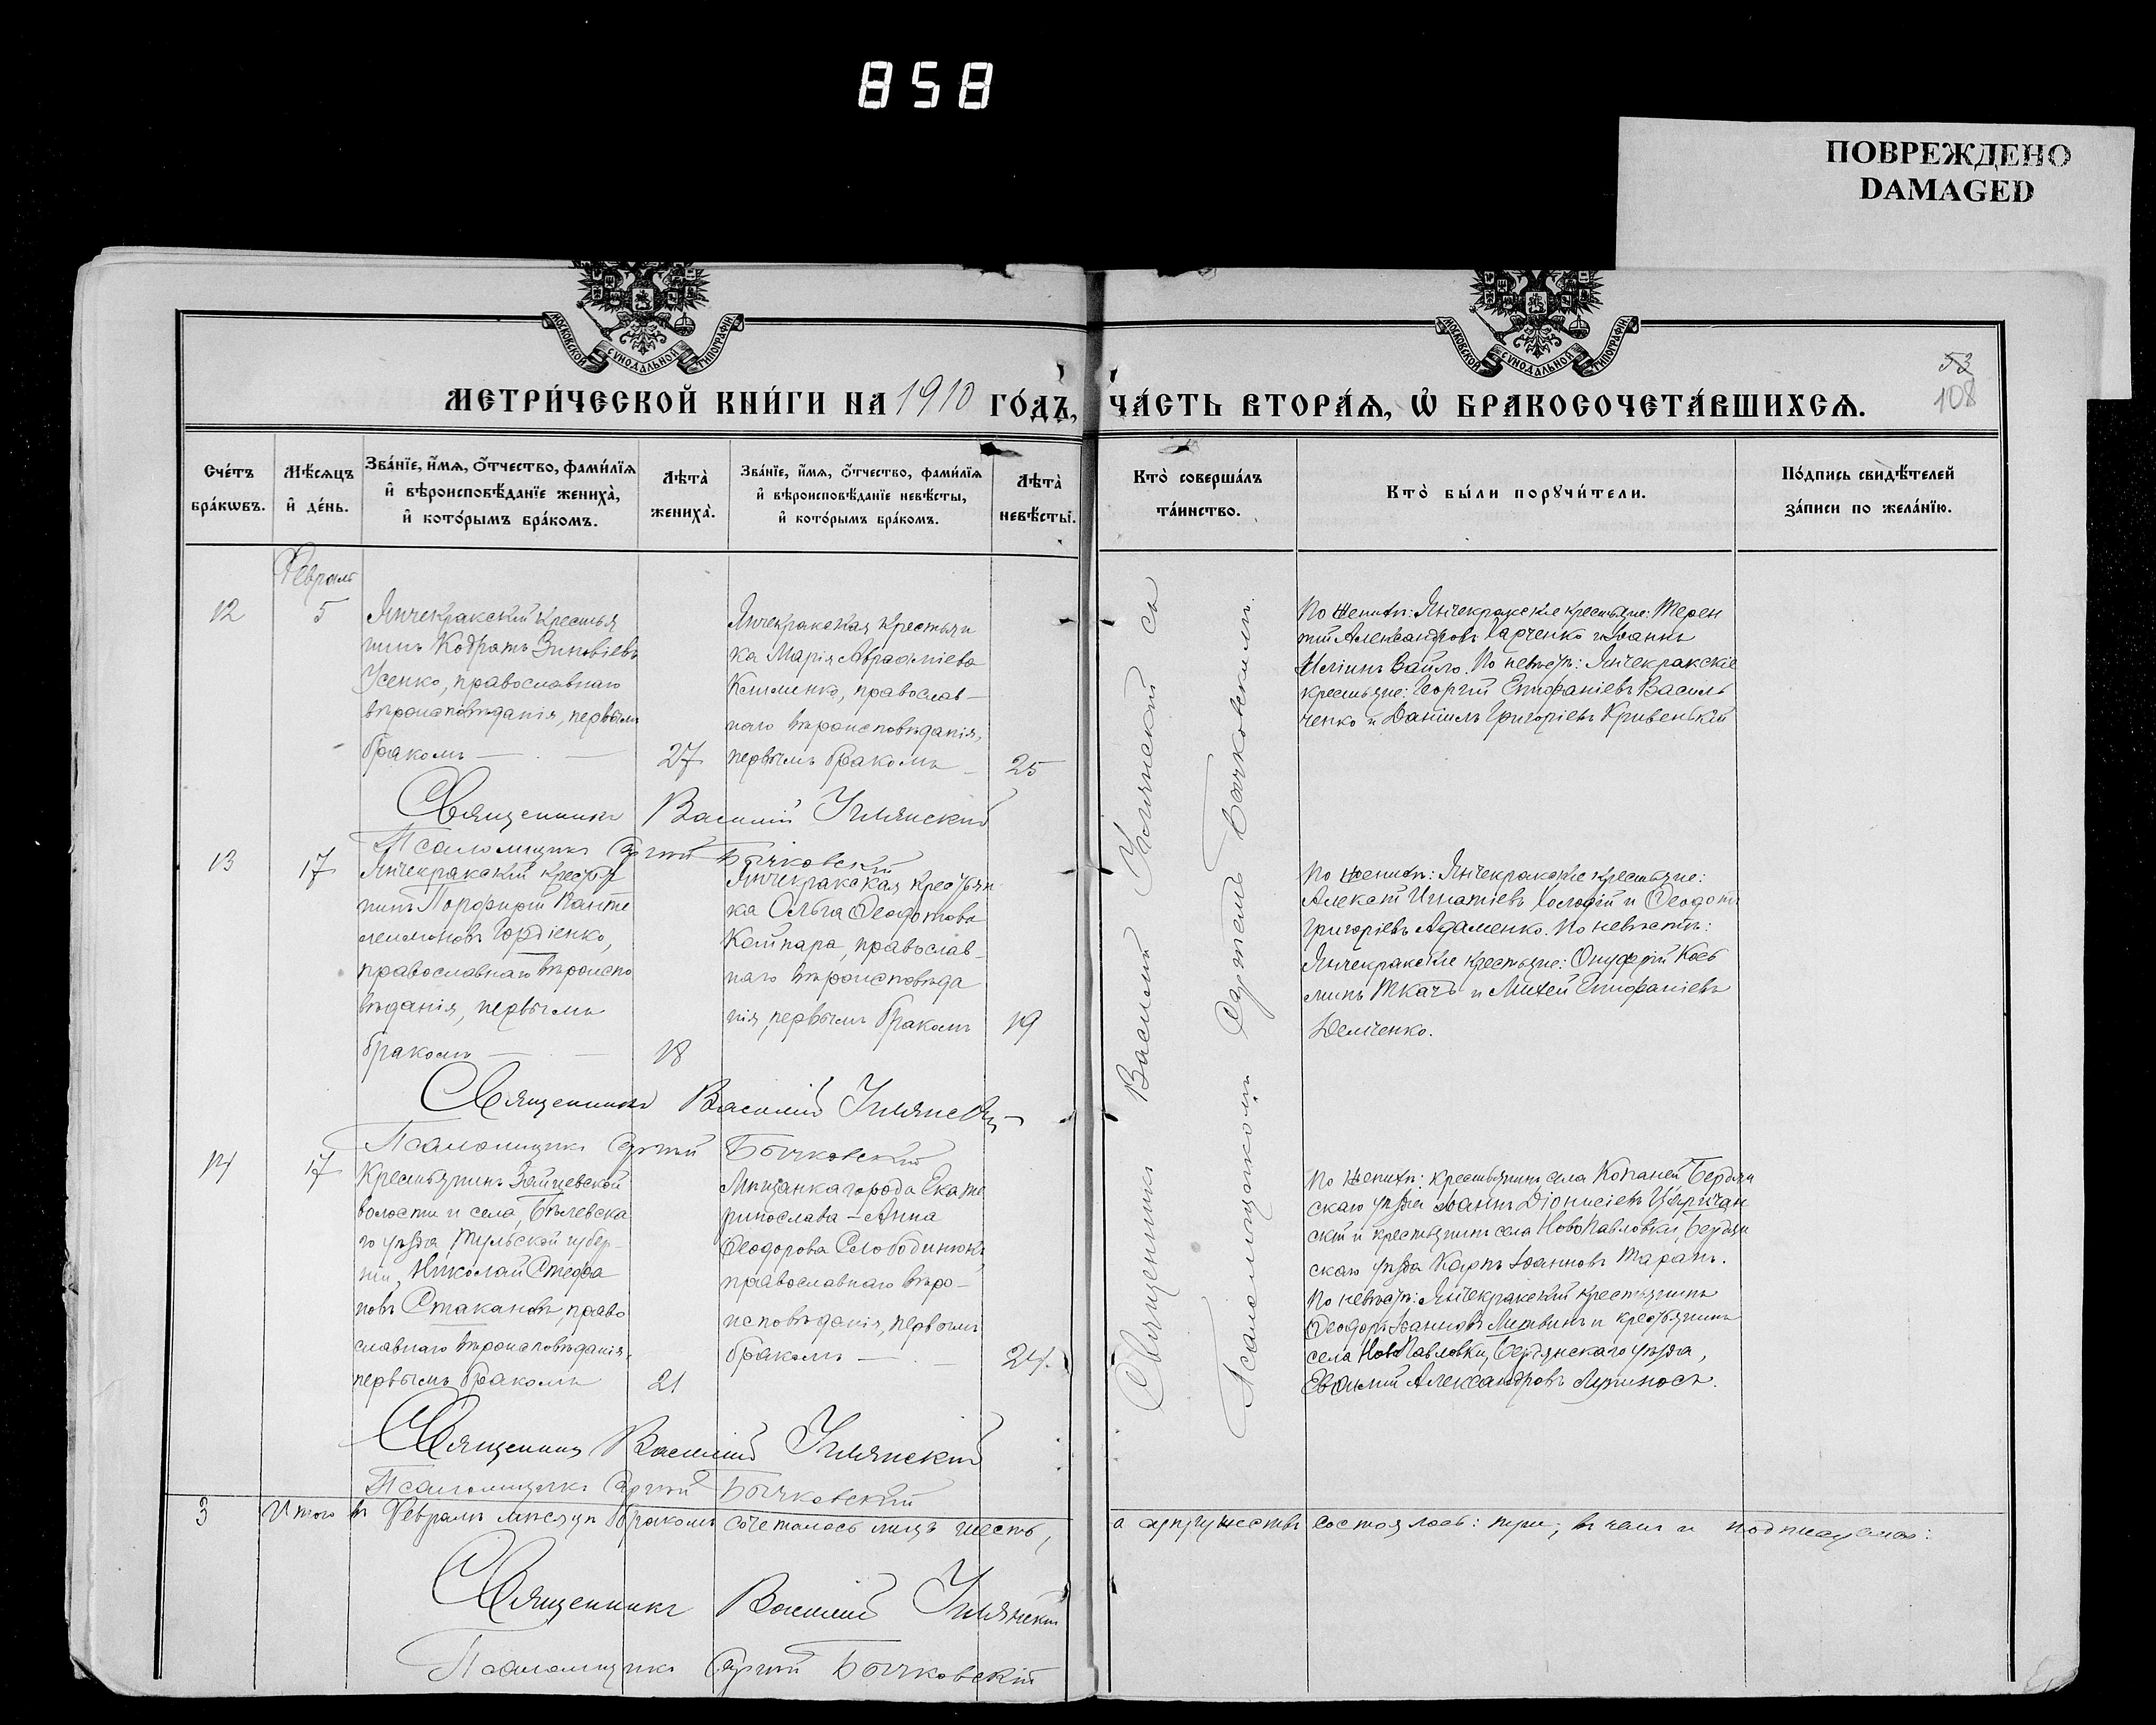 858
ПОВРЕЖДЕНО
DAMAGED
МОСКОВСКОЙ СѴНОДАЛЬНОЙ ТИПОГРАФІИ
МОСКОВСКОЙ СѴНОДАЛЬНОЙ ТИПОГРАФІИ
53
108
МЕТРИ́ЧЕСКОЙ КНИ́ГИ НА 1910 ГО́ДЪ,
ЧА́СТЬ ВТОРА́Ѧ, Ѽ БРАКОСОЧЕТА́ВШИХСѦ.
Сче́тъ бра́кѡвъ.
Мѣ́сѧцъ и҆ де́нь.
Зва́нїе, и҆́мѧ, ѻ҆́тчество, фами́лїѧ
и҆ вѣроисповѣ́данїе жениха̀,
и҆ кото́рымъ бра́комъ.
Лѣта̀ жениха̀.
Зва́нїе, и҆́мѧ, ѻ҆́тчество, фами́лїѧ
и҆ вѣроисповѣ́данїе невѣ́сты,
и҆ кото́рымъ бра́комъ.
Лѣта̀ невѣ́сты.
Кто̀ соверша́лъ
та́инство.
Кто̀ бы́ли порꙋчи́тели.
По́дпись свидѣ́телей
за́писи по жела́нїю.
Февраль
12
5
Янчекракский крестья
нинъ Кодратъ Зиновіевъ
Усенко, православнаго
вѣроисповѣданія, первымъ
бракомъ —
27
Янчекракская крестьян
ка Марія Авраміева
Клименко, православ-
наго вѣроисповѣданія,
первымъ бракомъ
25
По женихѣ: Янчекракскіе крестьяне: Терен
тій Александровъ Харченко и Іоаннъ
Иліинъ Вайло. По невѣстѣ: Янчекракскіе
крестьяне: Георгій Епифаніевъ Василь
ченко и Даніилъ Григоріевъ Кривенькій
Священникъ Василій
Псаломщикъ Сергій Бычковскій
13
17
Янчекракский крестья
нинъ Порфирій Панте
леимоновъ Гордіенко,
православнаго вѣроиспо
вѣданія, первымъ
бракомъ —
18
Янчекракская крестьян
ка Ольга Ѳеодотова
Кайпара, православ-
наго вѣроисповѣда
нія, первымъ бракомъ
19
По женихѣ: Янчекракскіе крестьяне:
Алексій Игнатіевъ и Ѳеодотъ
Григоріевъ Адаменко. По невѣстѣ:
Янчекракскіе крестьяне: Онуфрій Кось
минъ Ткачъ и Михей Епифаніевъ
Демченко.
Священникъ Василій
Псаломщикъ Сергій Бычковскій
14
17
Крестьянинъ Зайцевской
волости и села, Бѣлевска
го уѣзда Тульской губер-
ніи, Николай Стефа
новъ Стакановъ, право
славнаго вѣроисповѣданія,
первымъ бракомъ
21
Мѣщанка города Екате
ринослава — Анна
Ѳеодорова Слободинюкъ,
православнаго вѣро-
исповѣданія, первымъ
бракомъ —
24.
По женихѣ: крестьянинъ села Копаней Бердян
скаго уѣзда Іоаннъ Діонисіевъ Цяричан
скій и крестьянинъ села НовоПавловки, Бердян
скаго уѣзда Карпъ Іоанновъ Таранъ.
По невѣстѣ: Янчекракский крестьянинъ
Ѳеодоръ Іоанновъ Литвинъ и крестьянинъ
села НовоПавловки, Бердянскаго уѣзда,
Евѳимій Александровъ
Священникъ Василій
Псаломщикъ Сергій Бычковскій
Священникъ Василій
Псаломщикомъ Сергіемъ Бычковскимъ.
3
Итого въ Февралѣ мѣсяцѣ бракомъ сочеталось лицъ шесть,
а супружествъ состоялось: три, въ чемъ и подписуемся:
Священникъ Василій
Псаломщикъ Сергій Бычковскій